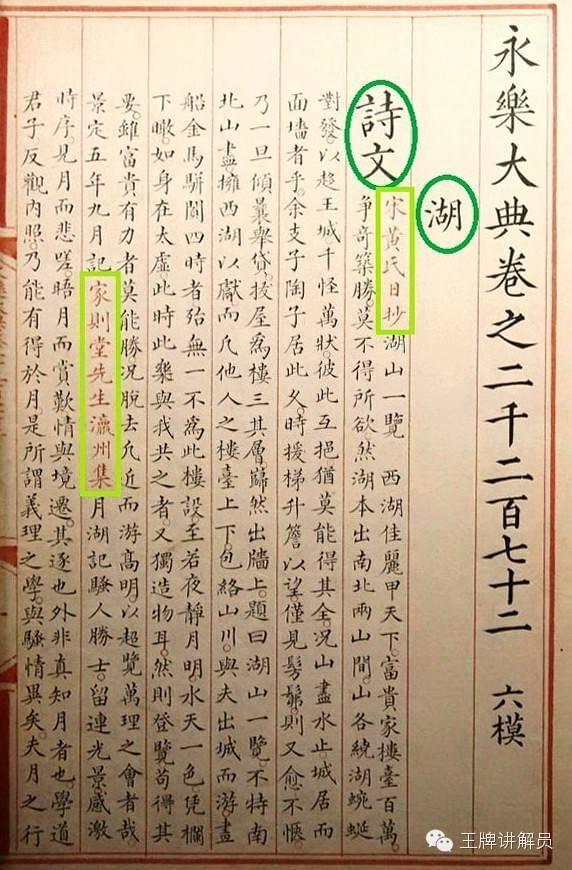 永樂大典卷之二千二百七十二 六模
湖
詩文 宋黃氏日抄湖山一覽 西湖佳麗甲天下富貴家樓臺百萬
爭奇築勝莫不得所欲然湖本出南北兩山間山各繞湖蜿蜒
對發以趍王城千怪萬狀彼此互挹猶莫能得其全况山盡水止城居而
面墻者乎余支子陶子居此久時援梯升簷以望僅見髣髴則又愈不愜
乃一旦傾囊舉貸撤屋爲樓三其層巋然出牆上題曰湖山一覽不特南
北山盡擁西湖以獻而凢他人之樓臺上下包絡山川與夫出城而游畫
船金馬駢闐四時者殆無一不爲此樓設至若夜靜月明水天一色凭欄
下瞰如身在太虛此時此樂與我共之者又獨造物耳然則登覽苟得其
要雖富貴有力者莫能勝况脫去凢近而游髙明以超覽萬理之會者哉
景定五年九月記家則堂先生瀛州集月湖記騷人勝士留連光景感激
時序見月而悲嗟晤月而賞歎情與境遷其逐也外非真知月者也學道
君子反觀內照乃能有得於月是所謂義理之學與騷情異矣夫月之行
王牌讲解员